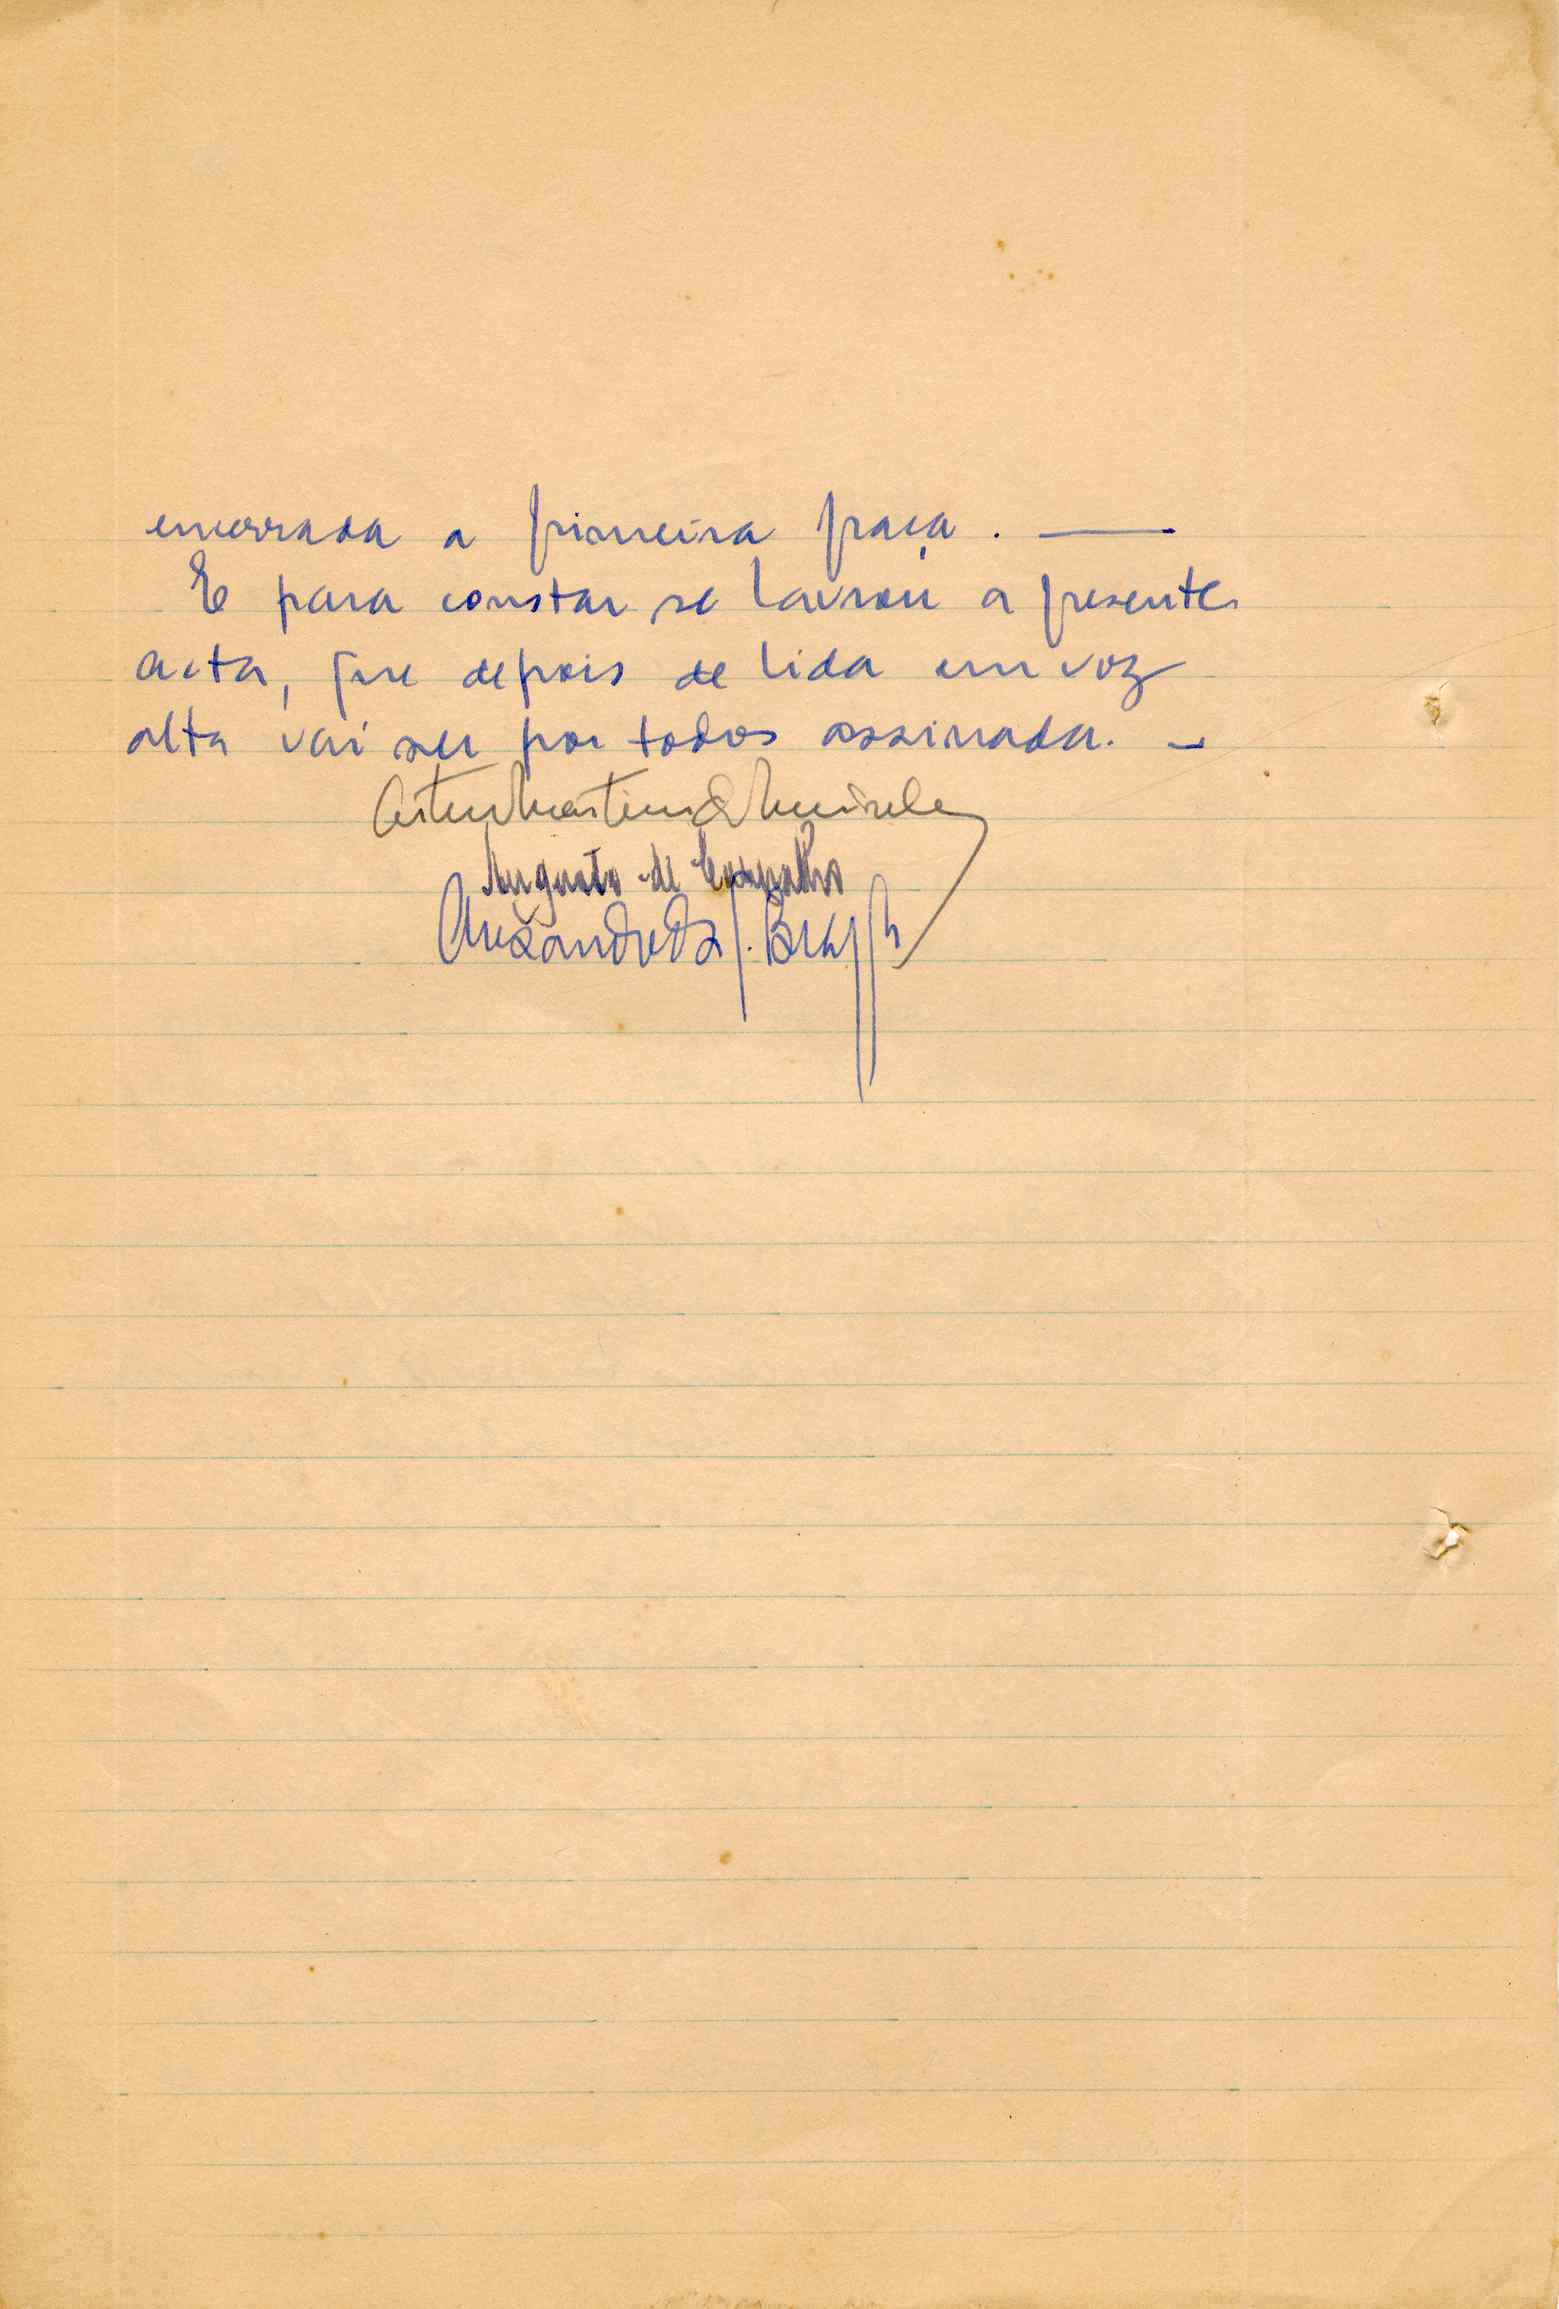 encerrada a primeira praça. ——
E para constar se lavrou a presente
acta, que depois de lida em voz
alta vai ser por todos assinada. —
Artur Martins
Augusto de Carvalho
Alexandre da S. Braga